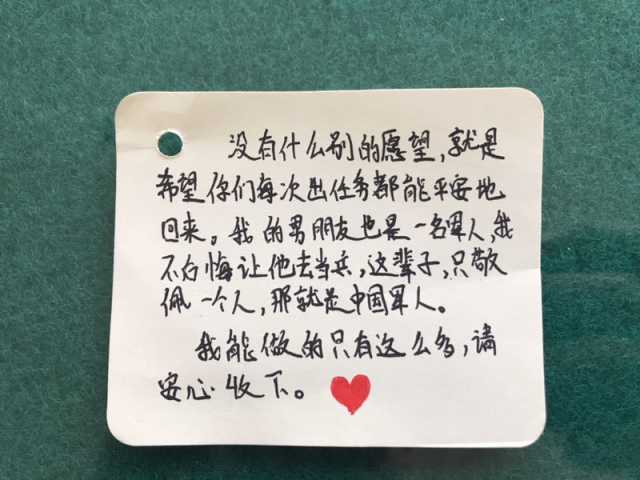 没有什么别的愿望,就是
希望你们每次出任务都能平安地
回来。我的男朋友也是一名军人,我
不后悔让他去当兵,这辈子,只敬
佩一个人,那就是中国军人。
我能做的只有这么多,请
安心收下。